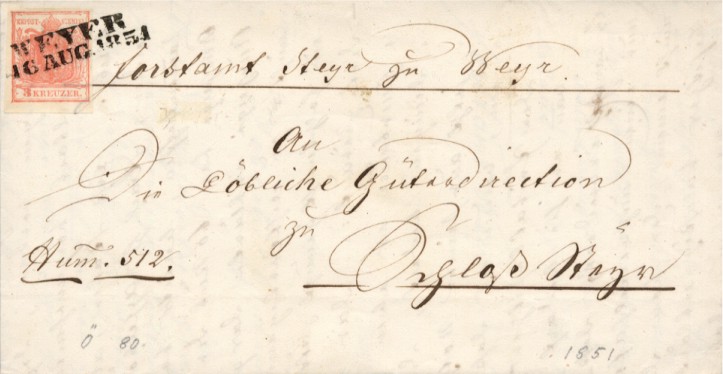 WEYER
16 AUG. 1851
3 KREUZER.
Forstamt Steyr zu Weyr.
An
Die Löbliche Güterdirection
zu
Schloß Steyr
Num. 512.
Ö 80.
1851